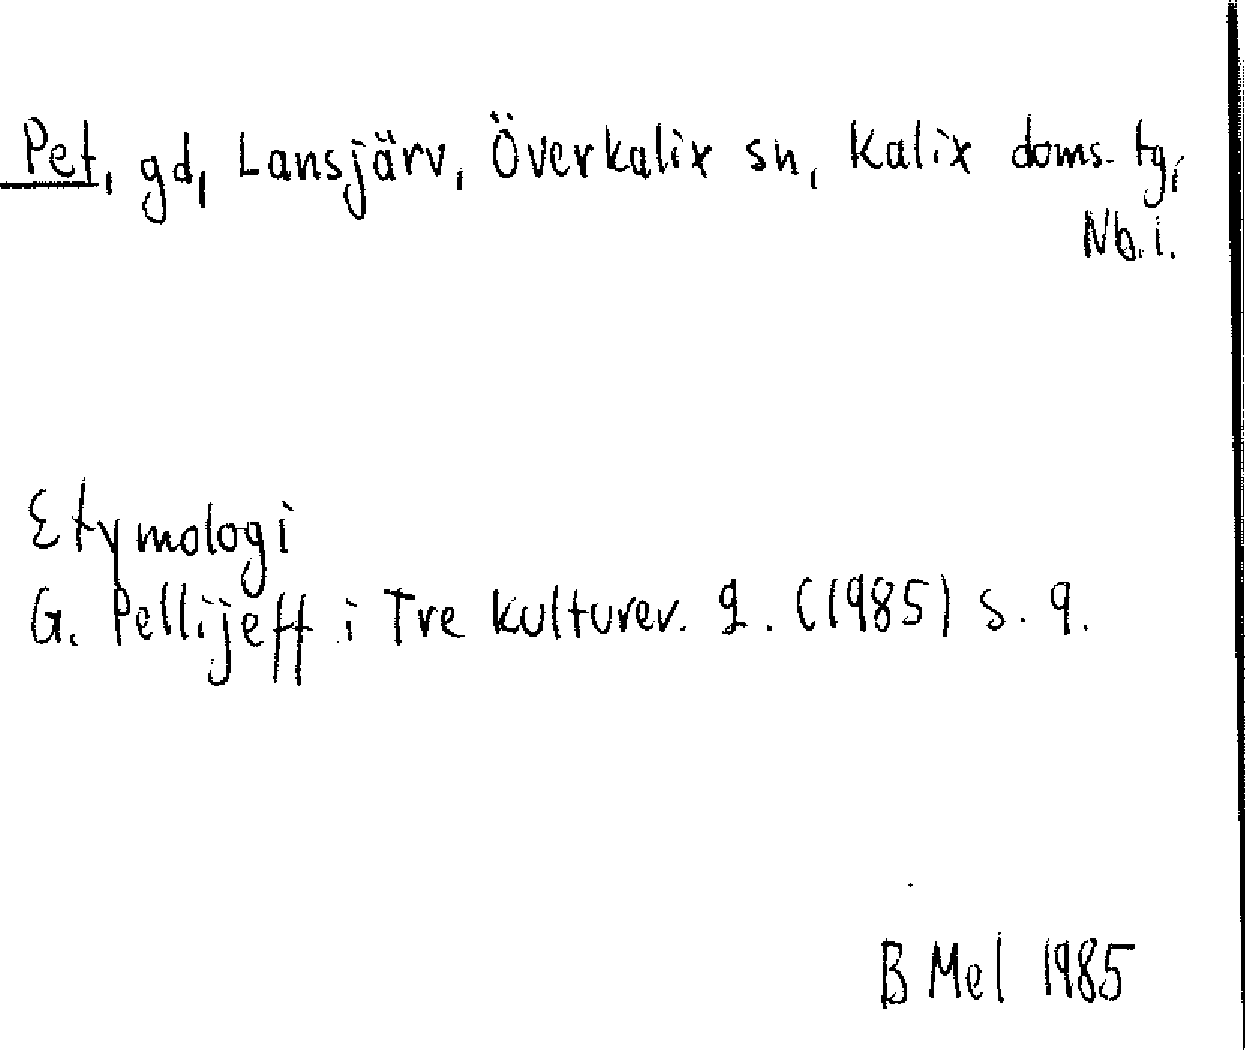 Pet, gd, Lansjärv, Överkalix sn, Kalix doms. tg,
Nb. l.
Etymologi
G. Pellijeff i Tre kulturer. 2. (1985) s. 9.
B Mel 1985